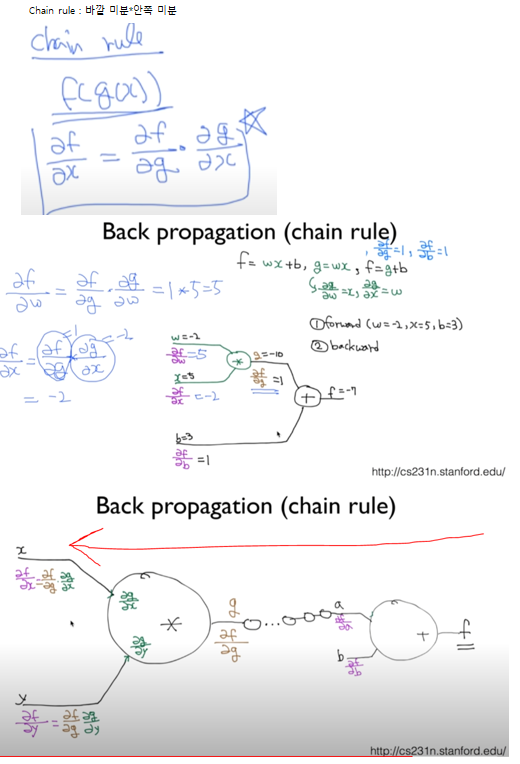 Chain rule : 바깥 미분*안쪽 미분
chain rule
f(g(x))
∂f/∂x = ∂f/∂g · ∂g/∂x ☆
Back propagation (chain rule)
f = wx+b, g=wx, f=g+b
, ∂f/∂g=1, ∂f/∂b=1
∂g/∂w=x, ∂g/∂x=w
∂f/∂w = ∂f/∂g · ∂g/∂w = 1*5=5
① forward (w=-2, x=5, b=3)
② backward
∂f/∂x = ∂f/∂g · ∂g/∂x
1
-2
= -2
w=-2
∂f/∂w =5
g=-10
*
x=5
∂f/∂g =1
∂f/∂x =-2
+
f=-7
b=3
∂f/∂b =1
http://cs231n.stanford.edu/
Back propagation (chain rule)
x
∂f/∂x = ∂f/∂g · ∂g/∂x
∂g/∂x
*
g
∂f/∂g
...
a
∂f/∂a
+
f
b
∂f/∂b
∂g/∂y
y
∂f/∂y = ∂f/∂g ∂g/∂y
http://cs231n.stanford.edu/